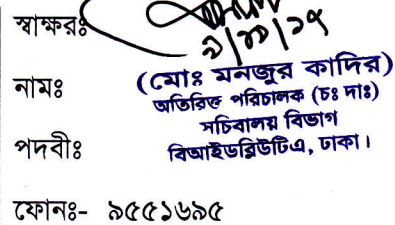 স্বাক্ষরঃ
৯/১০/১৭
নামঃ (মোঃ মনজুর কাদির)
অতিরিক্ত পরিচালক (চঃ দাঃ)
সচিবালয় বিভাগ
পদবীঃ বিআইডব্লিউটিএ, ঢাকা।
ফোনঃ- ৯৫৫১৬৯৫